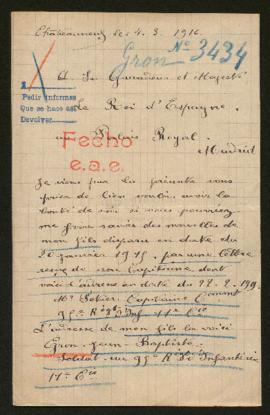 Châteauneuf le: 4. 3. 1916.
Gron Nº 3434
A Sa Grandeur et Majesté
le Roi d'Espagne.
1
Pedir informes
Que se hace así
Devolver
au Palais Royal.
Madrid
Fecho
e.a.e.
Je viens par la présente vous
prier de bien vouloir avoir la
bonté de voir si vous pourriez
me faire savoir des nouvelles de
mon fils disparu en date du
20 janvier 1915, par une lettre
reçue de son Capitaine, dont
voici l'adresse en date du 22-2-
Mr Potier Capitaine Commt
95e Rgt d'Inf. 11e Cie
L'adresse de mon fils la voici
Gron Jean-Baptiste
Soldat au 95e R. d'Infanterie
11e Cie